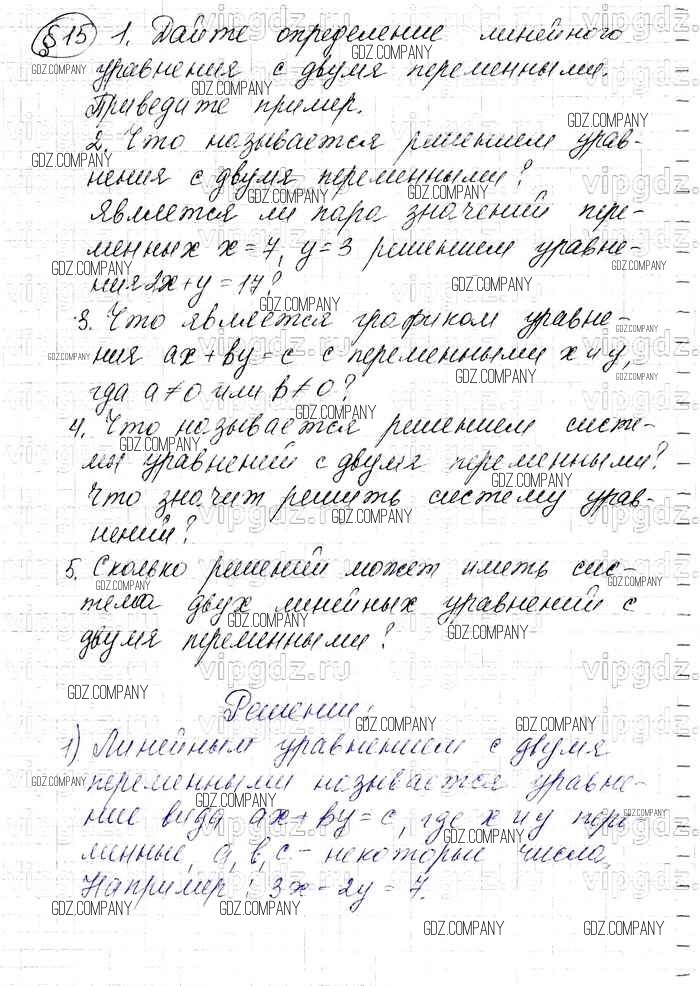 § 15 1. Дайте определение линейного
уравнения с двумя переменными.
Приведите пример.
2. Что называется решением урав-
нения с двумя переменными?
Является ли пара значений пере-
менных x = 7, y = 3 решением уравне-
ния 2x + y = 17?
3. Что является графиком уравне-
ния ax + by = c с переменными x и y,
где a ≠ 0 или b ≠ 0?
4. Что называется решением систе-
мы уравнений с двумя переменными?
Что значит решить систему урав-
нений?
5. Сколько решений может иметь сис-
тема двух линейных уравнений с
двумя переменными?
Решение:
1) Линейным уравнением с двумя
переменными называется уравне-
ние вида ax + by = c, где x и y пере-
менные, a, b, c - некоторые числа,
Например: 3x - 2y = 7.
GDZ.COMPANY
vipgdz.ru